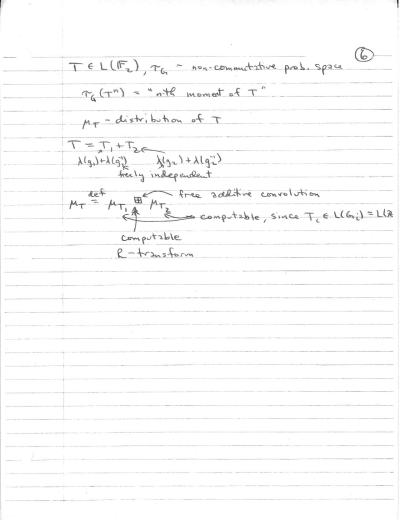 ⑥
T ∈ L(𝔽₂), τ_G - non-commutative prob. space
τ_G(Tⁿ) = "nth moment of T"
μ_T - distribution of T
T = T₁ + T₂
λ(g₁)+λ(g₁⁻¹) λ(g₂)+λ(g₂⁻¹)
freely independent
μ_T def= μ_T₁ ⊞ μ_T₂ free additive convolution
computable, since T_i ∈ L(G_i) = L(ℤ
computable
R-transform